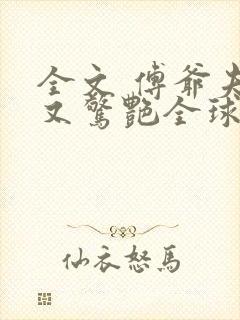 全文 傅爷夫
又驚艷全球
仙衣怒馬